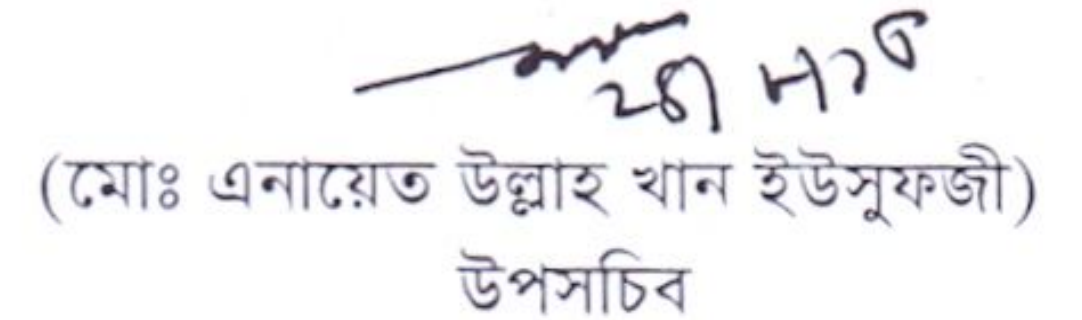 (মোঃ এনায়েত উল্লাহ খান ইউসুফজী)
উপসচিব